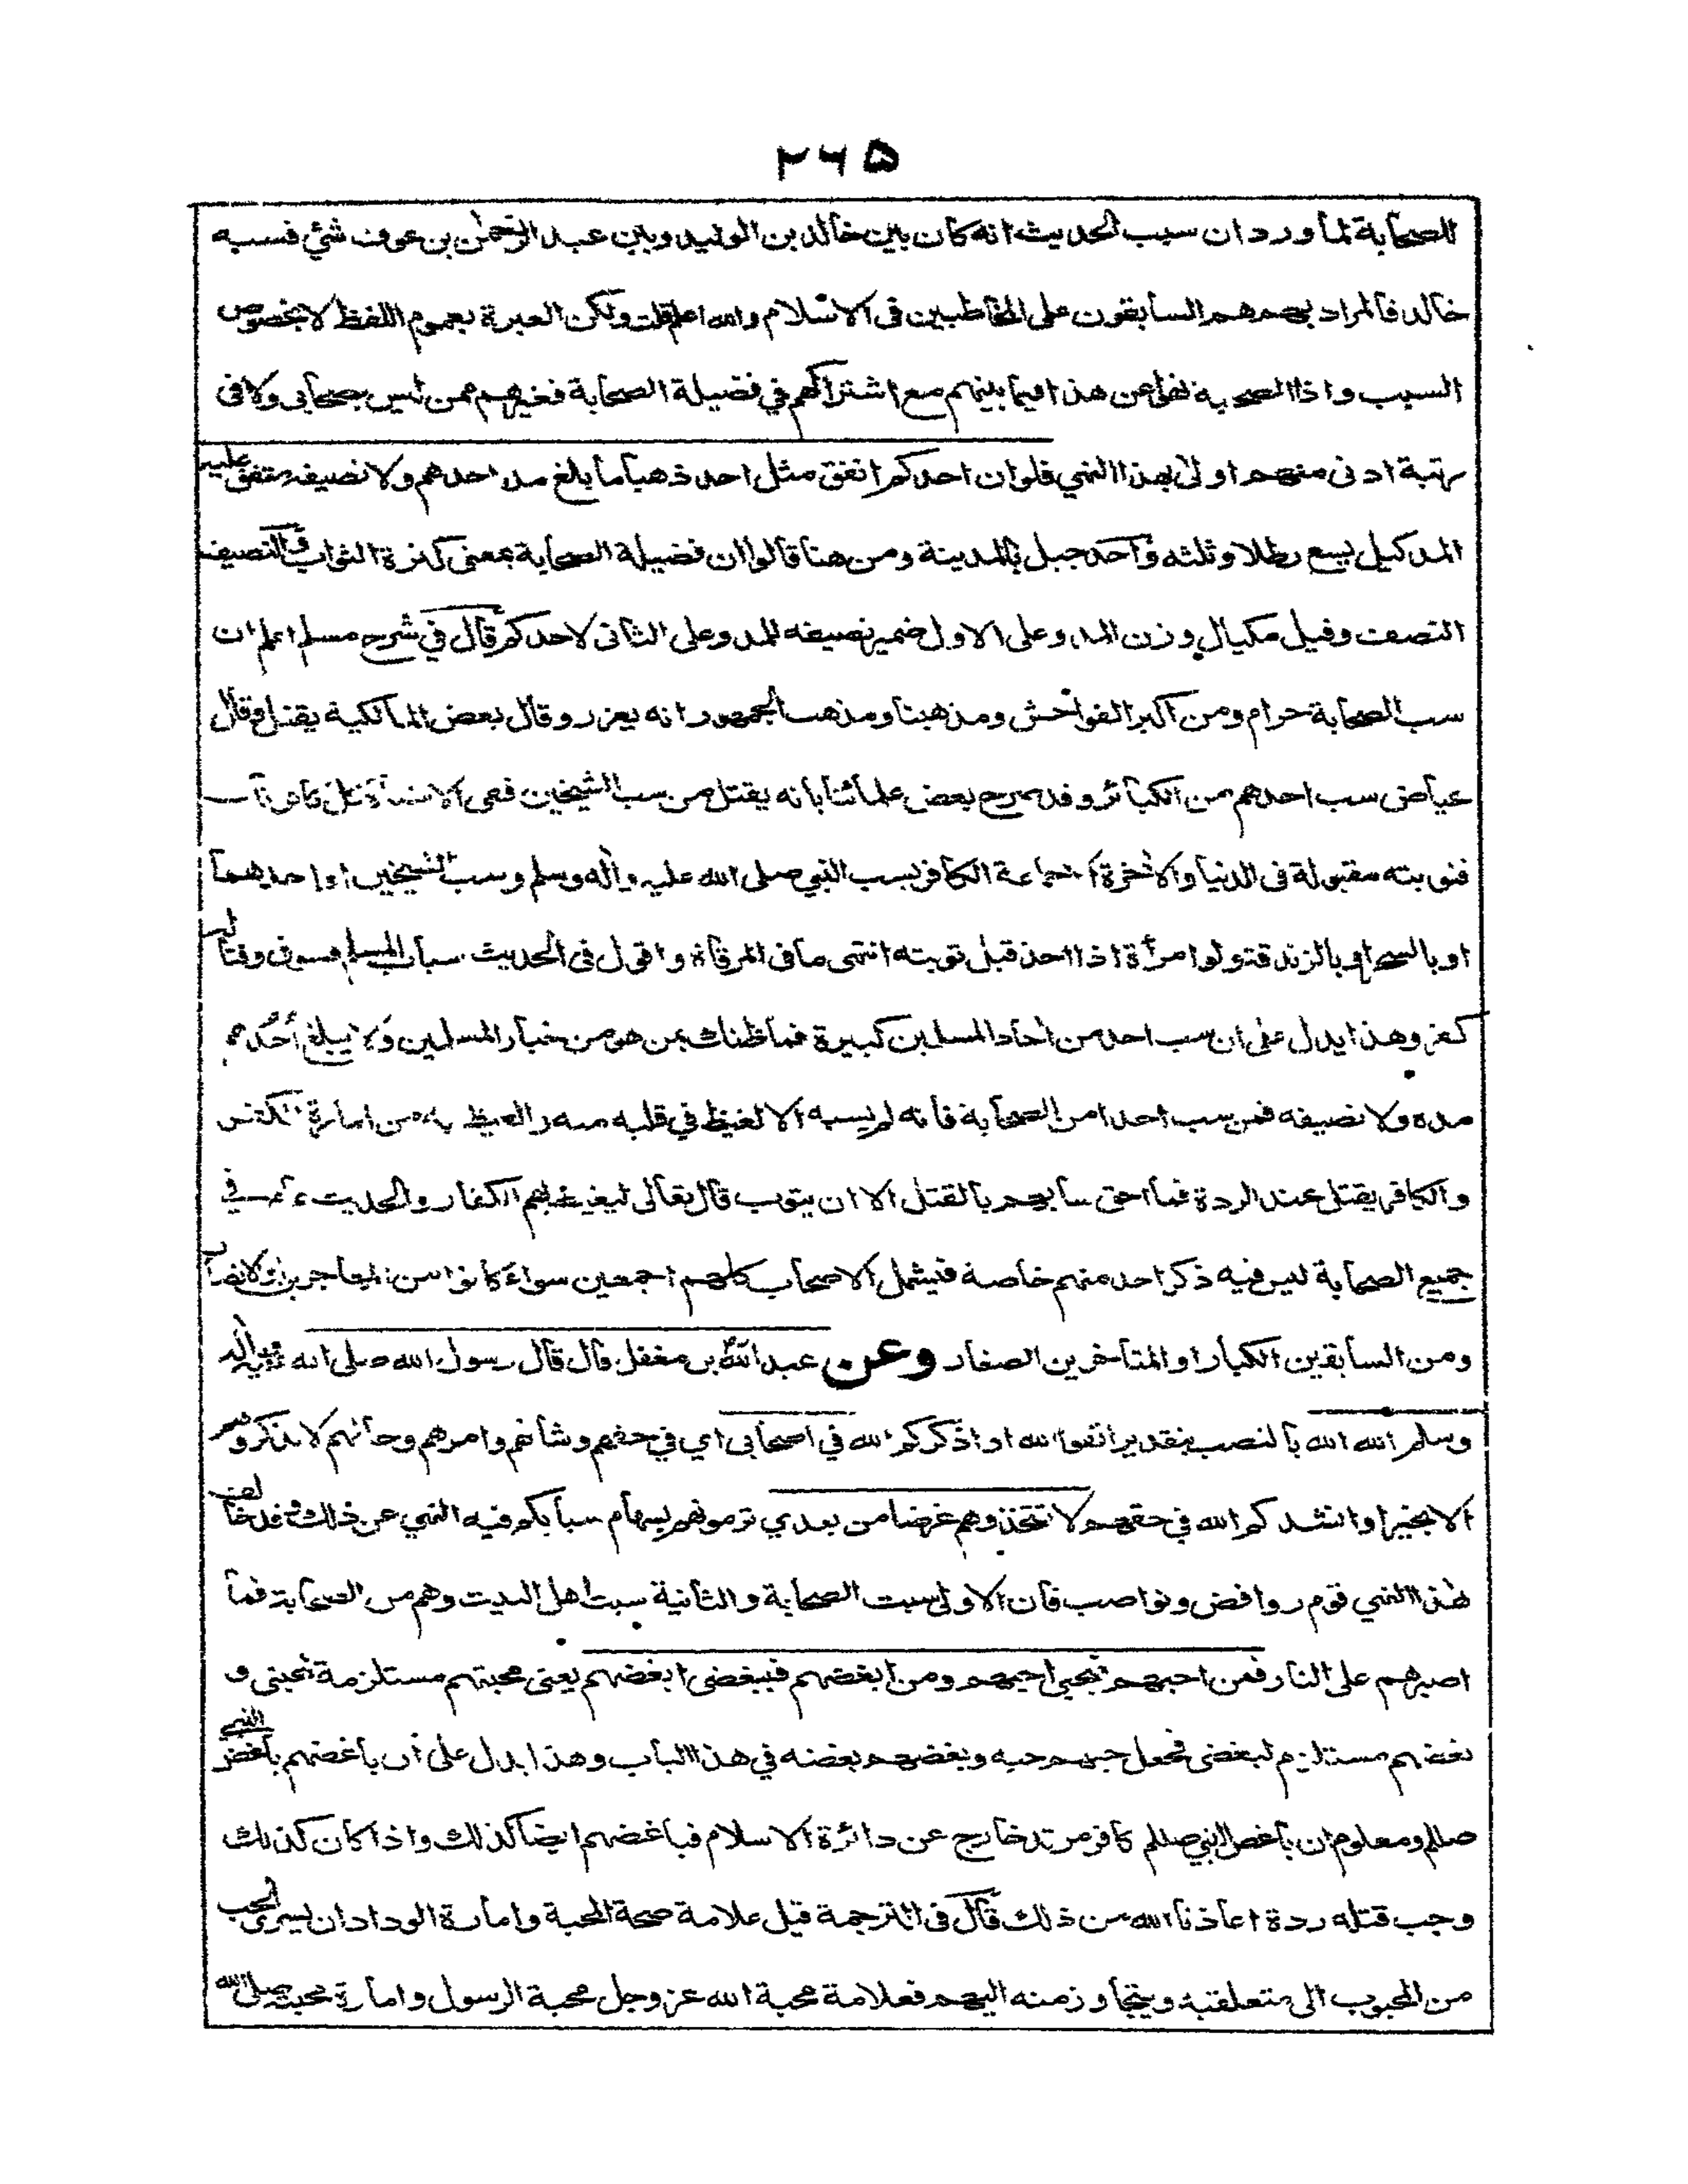 ٢٦٥
للصحابة لما ورد ان سبب الحديث انه كان بين خالد بن الوليد وبين عبد الرحمٰن بن عوف شئ فسبه
خالد فالمراد بهم هم السابقون على المخاطبين فى الاسلام والله اعلم قلت ولكن العبرة بعموم اللفظ لا بخصوص
السبب واذا الصحابة نهى عن هذا فيما بينهم مع اشتراكهم في فضيلة الصحابة فغيرهم ممن ليس بصحابى ولا فى
رتبة ادنى منهم اولى بهذا النهي فلو ان احدكم انفق مثل احد ذهبا ما بلغ مد احدهم ولا نصيفه متفق عليه
المد كيل يسع رطلا وثلثه واحد جبل بالمدينة ومن هنا قالوا ان فضيلة الصحابة بمعنى كثرة الثواب والنصيف
النصف وقيل مكيال وزن المد وعلى الاول ضمير نصيفه للمد وعلى الثانى لاحدكم قال في شرح مسلم اعلم ان
سب الصحابة حرام ومن اكبر الفواحش ومذهبنا ومذهب الجمهور انه يعزر وقال بعض المالكية يقتل وقال
عياض سب احدهم من الكبائر وقد صرح بعض علمائنا بانه يقتل من سب الشيخين ففى الاشباه كل كافر تاب
فتوبته مقبولة فى الدنيا والاٰخرة الا جماعة الكافر بسب النبي صلى الله عليه واٰله وسلم وسب الشيخين او احدهما
او بالسحر او بالزندقة ولو امرأة اذا اخذ قبل توبته انتهى ما فى المرقاة واقول فى الحديث سباب المسلم فسوق وقتاله
كفر وهذا يدل على ان سب احد من اٰحاد المسلمين كبيرة فما ظنك بمن هو من خيار المسلمين ولا يبلغ أحدهم
مده ولا نصيفه فمن سب احدا من الصحابة فانه لم يسبه الا لغيظ في قلبه منه والغيظ بهم من امارة الكفر
والكافر يقتل عند الردة فما احق سابهم بالقتل الا ان يتوب قال تعالى ليغيظ بهم الكفار والحديث عام في
جميع الصحابة ليس فيه ذكر احد منهم خاصة فيشمل الاصحاب كلهم اجمعين سواء كانوا من المهاجرين او الانصار
ومن السابقين الكبار او المتأخرين الصغار وعن عبد الله بن مغفل قال قال رسول الله صلى الله عليه واٰله
وسلم الله الله بالنصب بتقدير اتقوا الله او اذكركم الله في اصحابى اي في حقهم وشانهم وامرهم وحالهم لا تذكروهم
الا بخير او انشدكم الله في حقهم لا تتخذوهم غرضا من بعدي ترمونهم بسهام سبابكم فيه النهي عن ذلك وقد خالف
هذا النهي قوم روافض ونواصب فان الاولى سبت الصحابة والثانية سبت اهل البيت وهم من الصحابة فما
اصبرهم على النار فمن احبهم فبحبى احبهم ومن ابغضهم فببغضى ابغضهم يعنى محبتهم مستلزمة لمحبتى و
بغضهم مستلزم لبغضى فجعل حبهم حبه وبغضهم بغضه في هذا الباب وهذا يدل على أن باغضهم باغض النبي
صللم ومعلوم ان باغض النبي صللم كافر مرتد خارج عن دائرة الاسلام فباغضهم ايضا كذلك واذا كان كذلك
وجب قتله ردة اعاذنا الله من ذلك قال فى الترجمة قيل علامة صحة المحبة وامارة الوداد ان يسرى الحب
من المحبوب الى متعلقته ويتجاوز منه اليهم فعلامة محبة الله عز وجل محبة الرسول وامارة محبته صلى الله